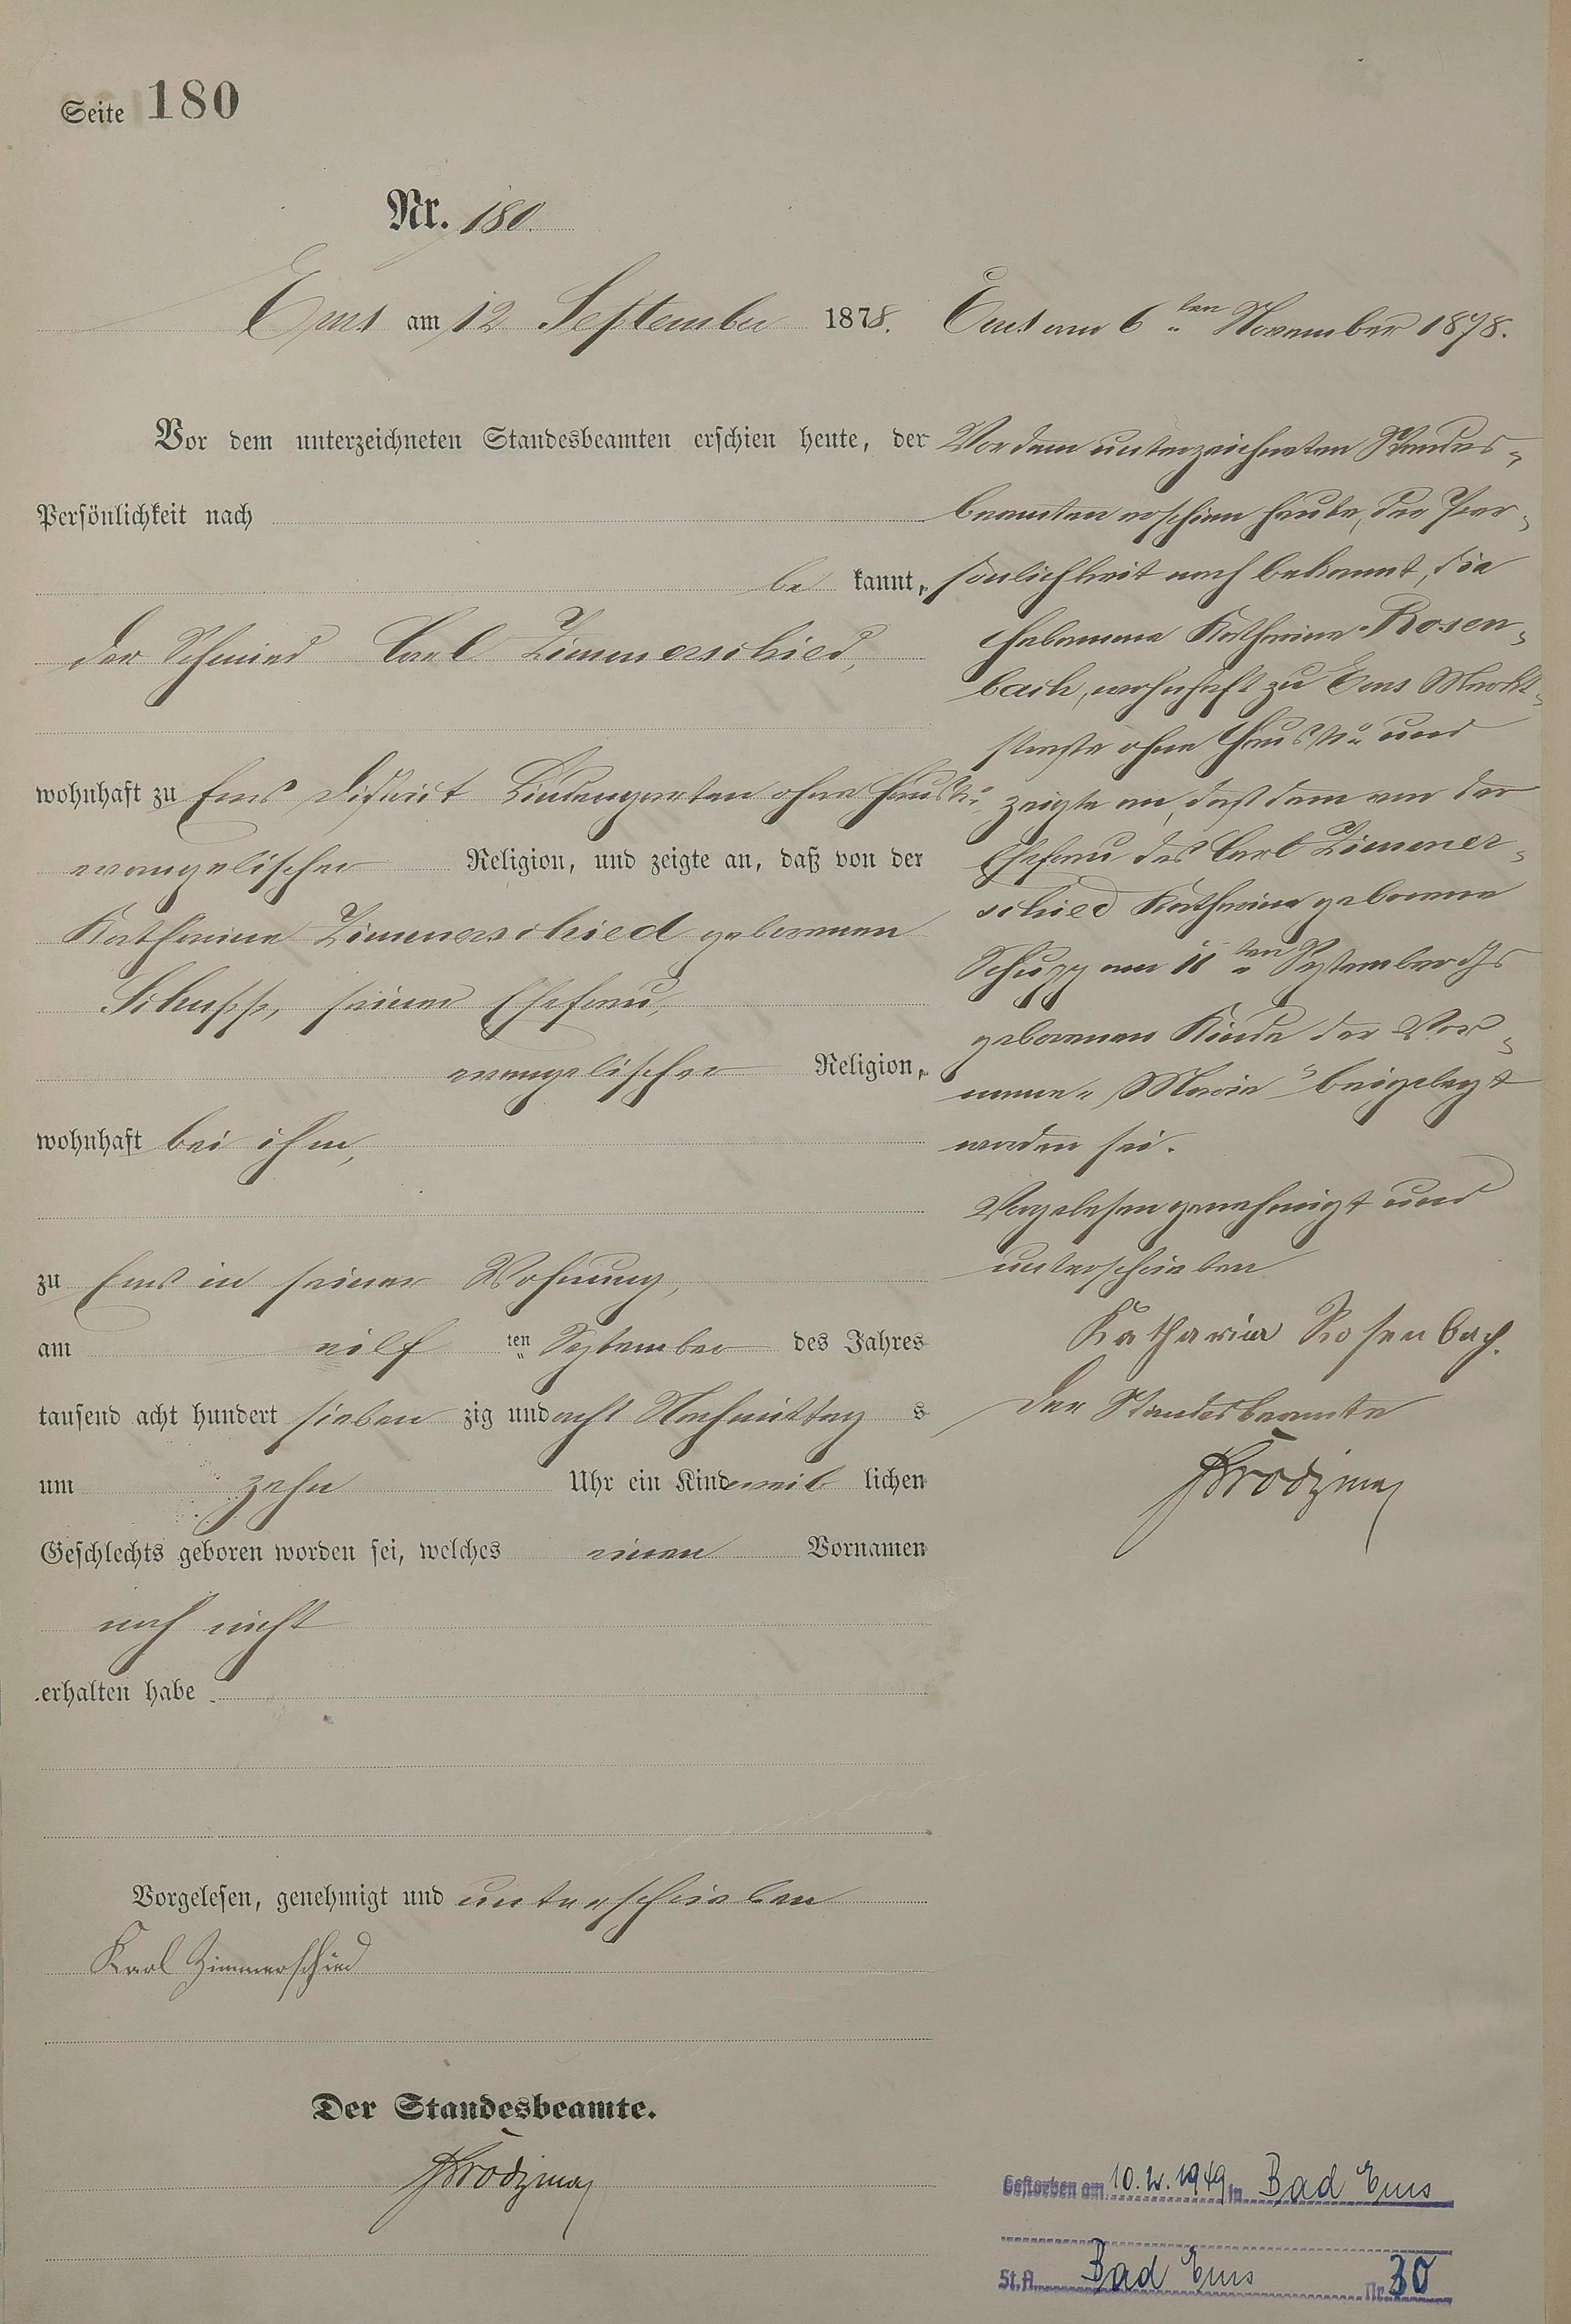 Seite 180
Nr. 180.
Ems am 12 September 1878.
Vor dem unterzeichneten Standesbeamten erschien heute, der
Persönlichkeit nach
be kannt,
der Schmied Carl Zimmerschied,
wohnhaft zu Ems District Lindengarten ohne Haus No
evangelischer Religion, und zeigte an, daß von der
Katharine Zimmerschied geborenen
Schupp, seiner Ehefrau,
evangelischer Religion,
wohnhaft bei ihm,
zu Ems in seiner Wohnung,
am eilf ten September des Jahres
tausend acht hundert sieben zig und acht Nachmittag s
um zehn Uhr ein Kind weib lichen
Geschlechts geboren worden sei, welches einen Vornamen
noch nicht
erhalten habe
Vorgelesen, genehmigt und unterschrieben
Karl Zimmerschied
Der Standesbeamte.
Ems am 6ten November 1878.
Vor dem unterzeichneten Standes-
beamten erschien heute, der Per-
sönlichkeit nach bekannt, die
Hebamme Katharine Rosen-
bach, wohnhaft zu Ems Markt-
straße ohne Haus No und
zeigte an, daß dem von der
Ehefrau des Carl Zimmer-
schied Katharine geborene
Schupp am 11ten September ds Js
geborenen Kinde der Vor-
name „Marie" beigelegt
worden sei.
Vorgelesen genehmigt und
unterschrieben
Katharina Rosenbach.
Der Standesbeamte
Gestorben am 10.2.1949 in Bad Ems
St.A. Bad Ems Nr. 30